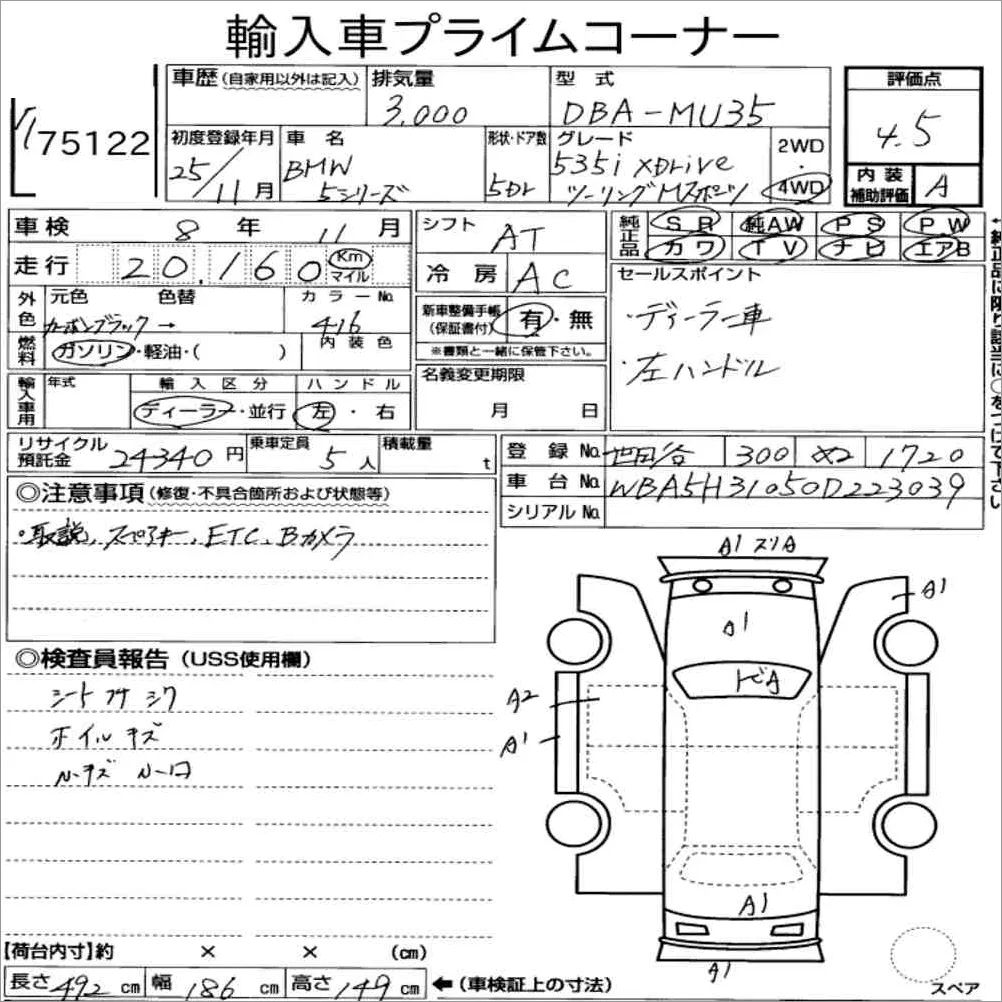 輸入車プライムコーナー
75122
車歴(自家用以外は記入)
排気量
3,000
型式
DBA-MU35
評価点
4.5
内装
補助評価
A
初度登録年月
25/11月
車名
BMW
5シリーズ
形状・ドア数
5Dr
グレード
535i xDrive
ツーリングMスポーツ
2WD
・
4WD
車検
8 年 11 月
走行
20,160
Km
マイル
外色
元色
色替
カラーNo.
カーボンブラック→
416
内装色
燃料
ガソリン・軽油・( )
輸入車用
年式
輸入区分
ディーラー・並行
ハンドル
左・右
シフト
AT
冷房
AC
新車整備手帳
(保証書付)
有・無
※書類と一緒に保管下さい。
名義変更期限
月 日
純正品
SR
純AW
PS
PW
カワ
TV
ナビ
エアB
セールスポイント
・ディーラー車
・左ハンドル
←純正品に限り該当に○をつけて下さい
リサイクル
預託金
24340円
乗車定員
5人
積載量
t
登録No.
世田谷 300 1720
車台No.
WBA5H31050D223039
シリアルNo.
◎注意事項(修復・不具合箇所および状態等)
・取説、スペアキー、ETC、Bカメラ
◎検査員報告(USS使用欄)
シートフサシワ
ホイルキズ
A1 スリA
A1
A1
トビA
A2
A1
A1
A1
【荷台内寸】約 × × (cm)
長さ 492 cm
幅 186 cm
高さ 149 cm
←(車検証上の寸法)
スペア